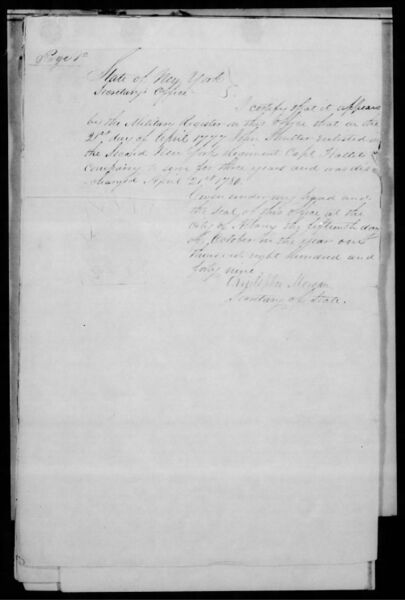 Page 1st
State of New York
Secretary's Office } S.
I certify that it appears
by the Military Register in this Office that on the
21st day of April 1777 John Enlisted in
the Second New York Regiment Capt
Company to serve for three years and was dis-
charged April 21st 1780.
Given under my hand and
the seal of this office at the
city of Albany the fifteenth day
of October in the year one
thousand eight hundred and
forty nine
Christopher Morgan
Secretary of State.